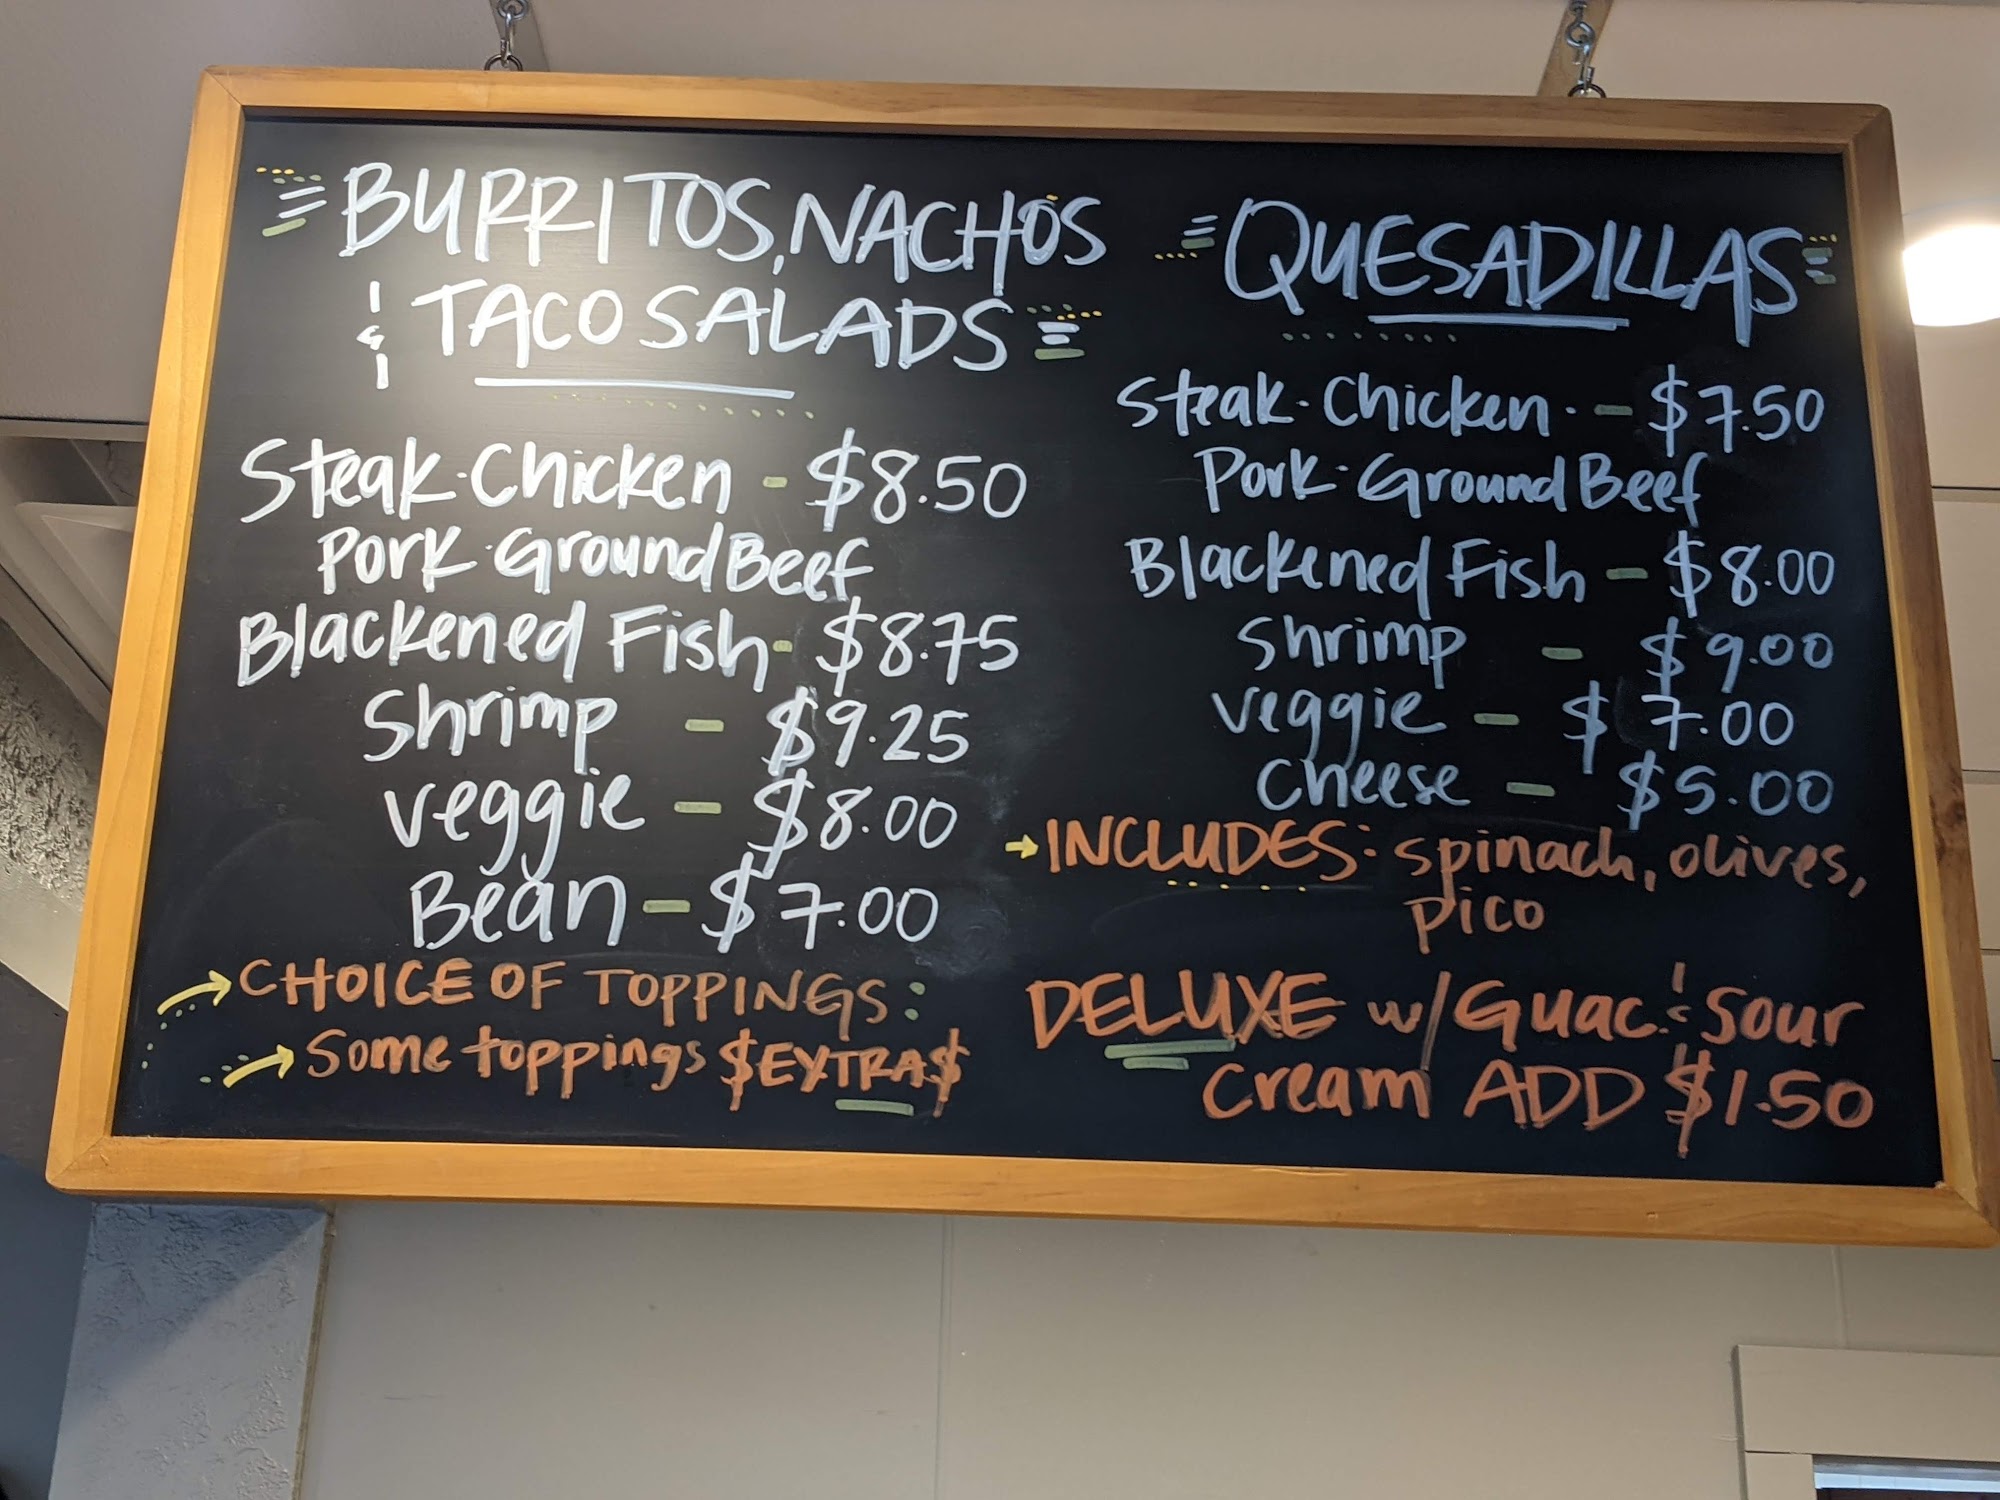 BURRITOS, NACHOS
& TACO SALADS
Steak · Chicken - $8.50
Pork · Ground Beef
Blackened Fish - $8.75
Shrimp - $9.25
veggie - $8.00
Bean - $7.00
→ CHOICE OF TOPPINGS:
→ Some toppings $EXTRA$
QUESADILLAS
Steak · Chicken · - $7.50
Pork · Ground Beef
Blackened Fish - $8.00
Shrimp - $9.00
veggie - $7.00
Cheese - $5.00
→ INCLUDES: spinach, olives,
pico
DELUXE w/ Guac & Sour
Cream ADD $1.50